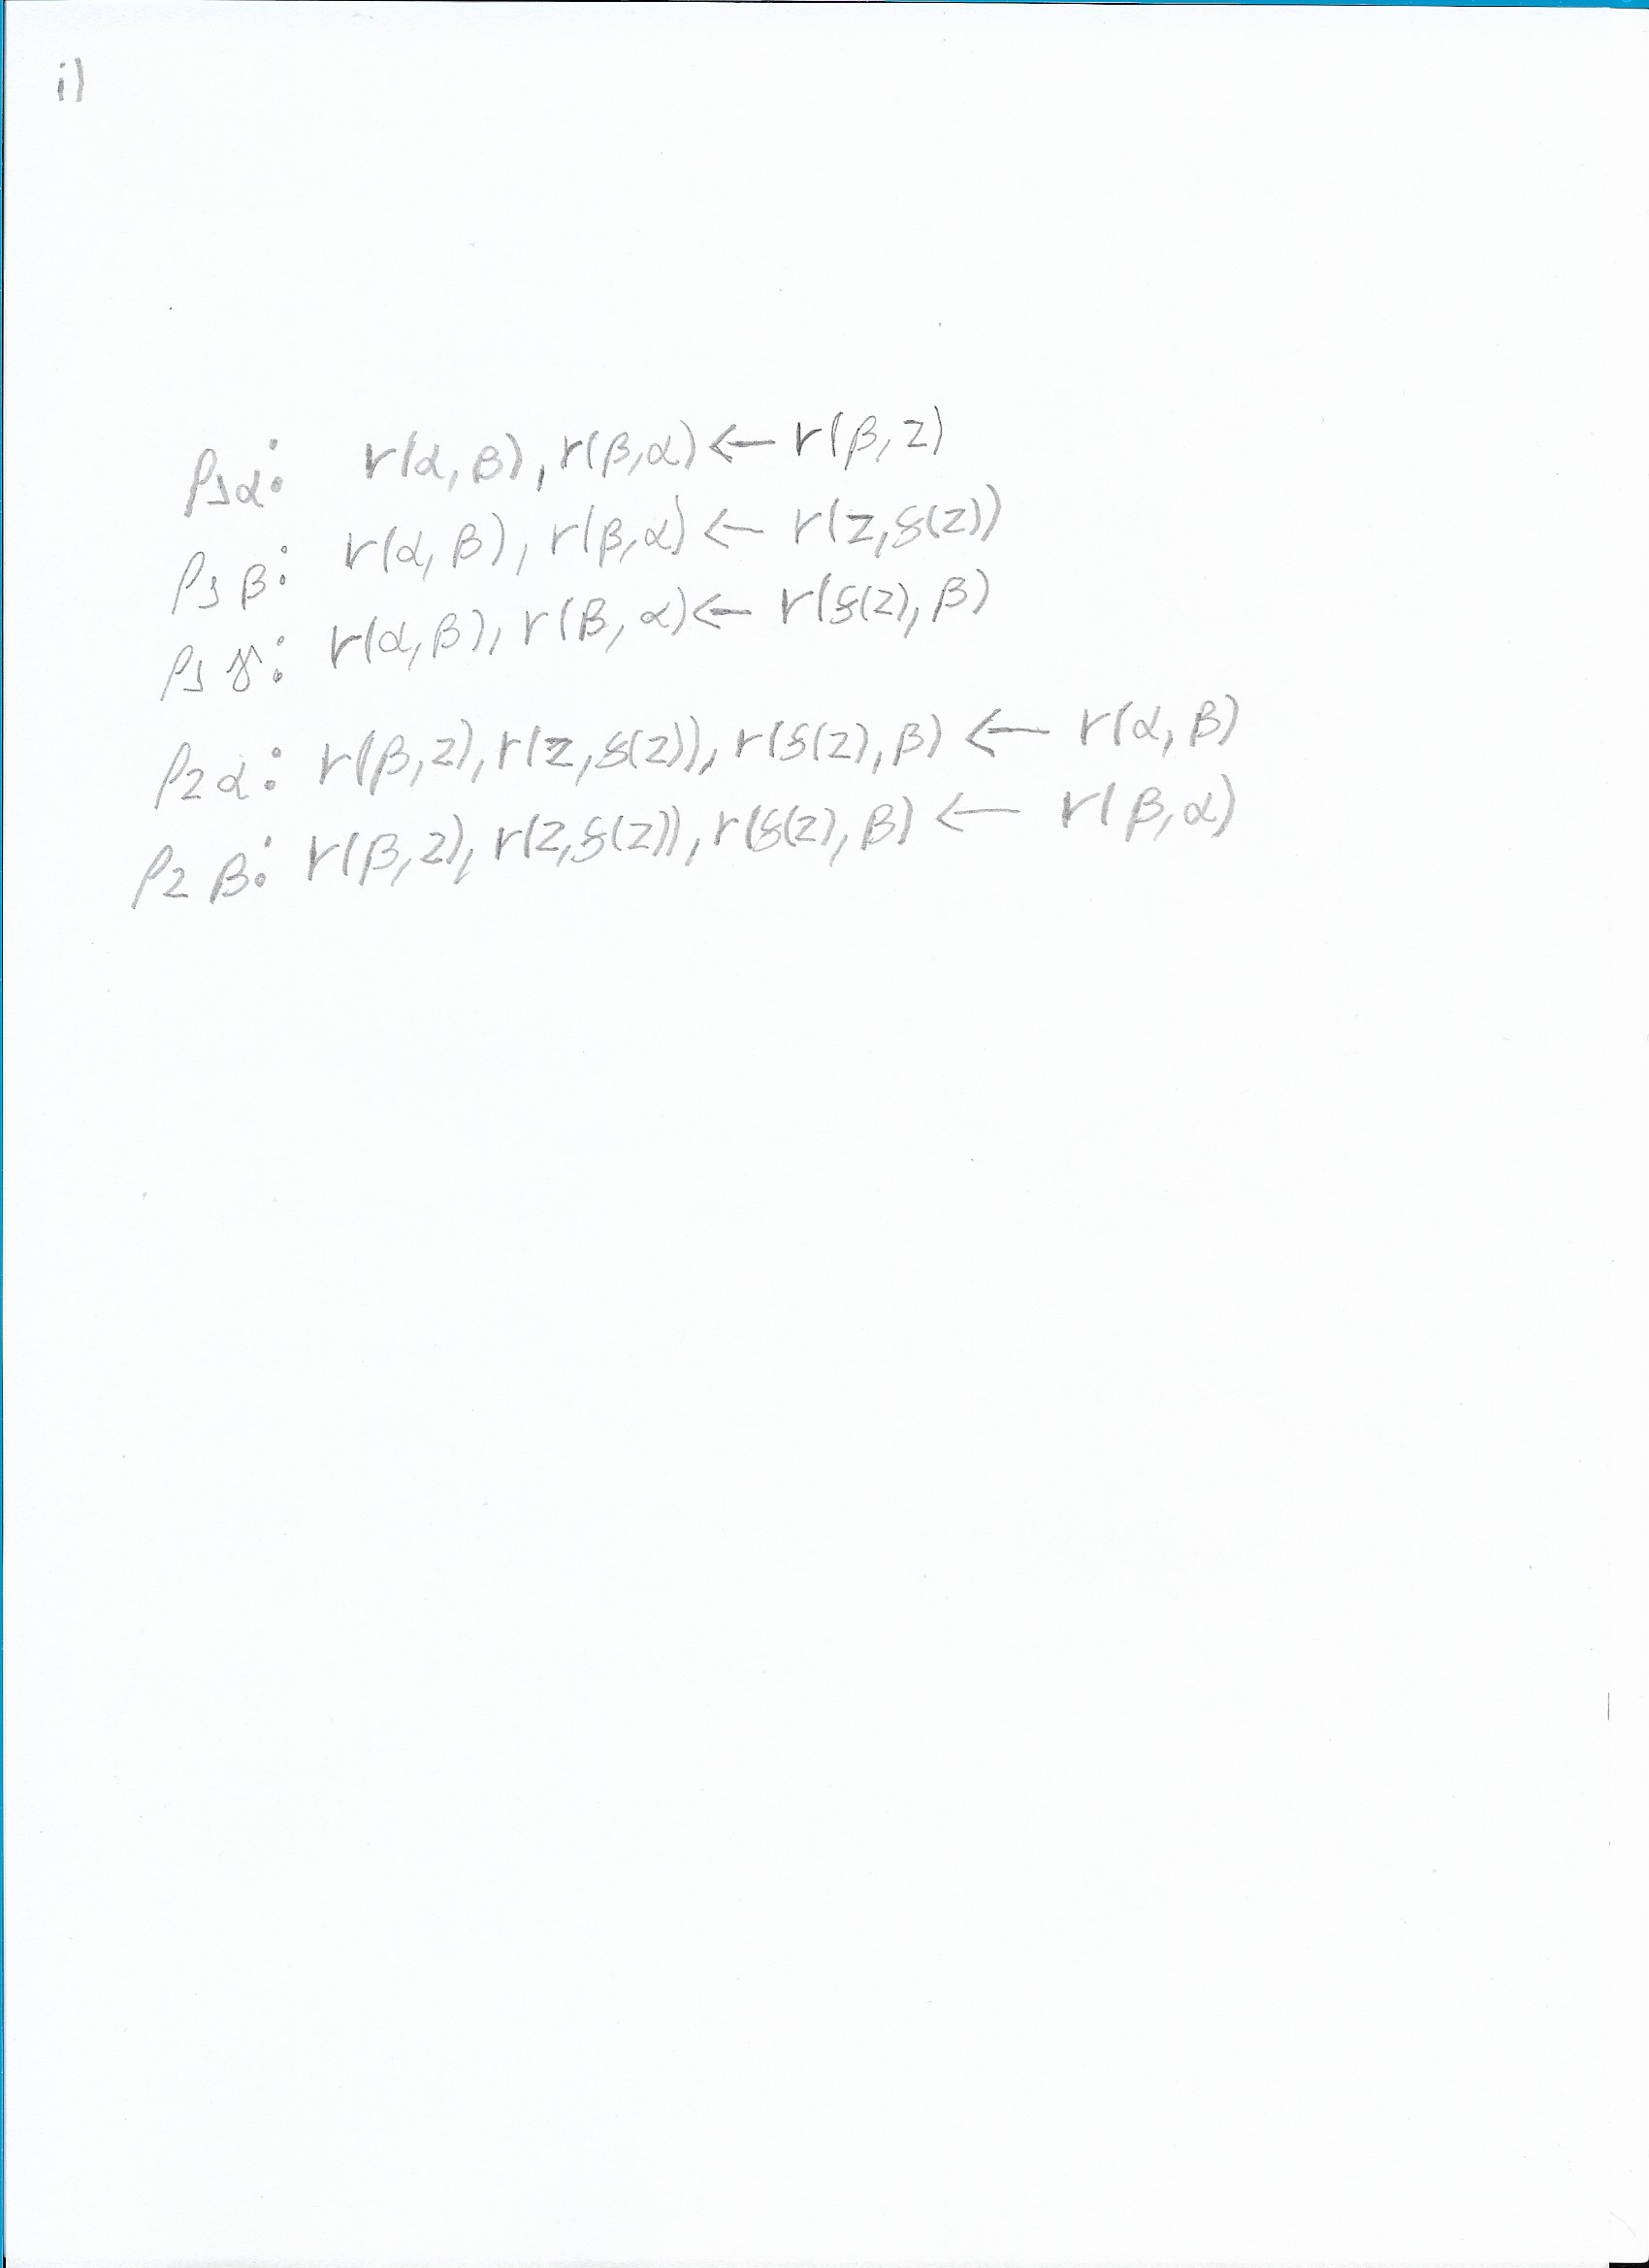 i)
ρ1α: r(α, β), r(β,α) ← r(β, z)
ρ1β: r(α, β), r(β,α) ← r(z,g(z))
ρ1γ: r(α,β), r(β, α) ← r(g(z), β)
ρ2α: r(β,z), r(z,g(z)), r(g(z), β) ← r(α, β)
ρ2β: r(β,z), r(z,g(z)), r(g(z), β) ← r(β,α)